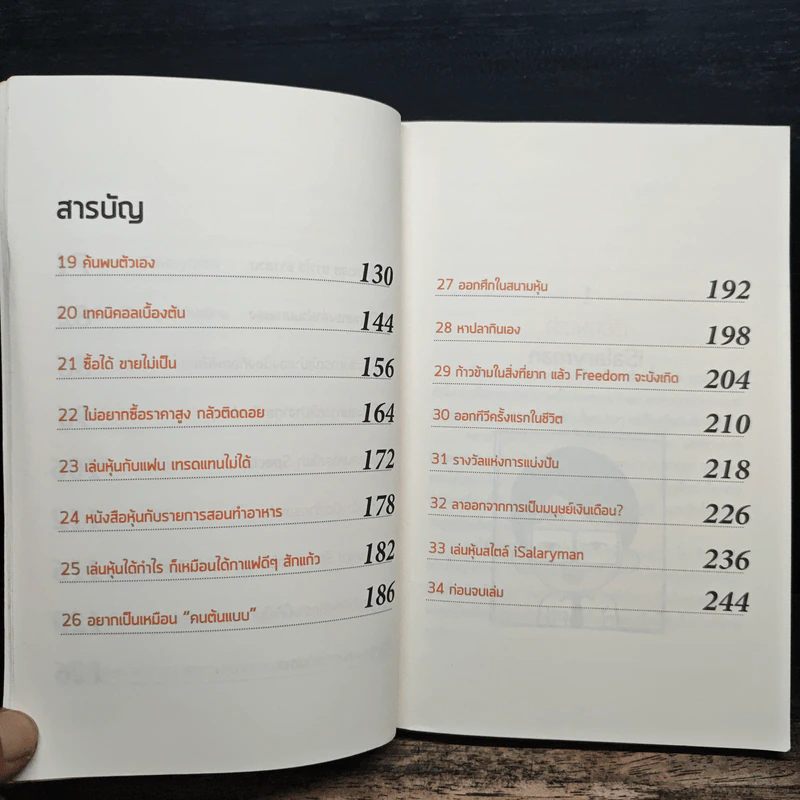 สารบัญ
19 ค้นพบตัวเอง 130
20 เทคนิคอลเบื้องต้น 144
21 ซื้อได้ ขายไม่เป็น 156
22 ไม่อยากซื้อราคาสูง กลัวติดดอย 164
23 เล่นหุ้นกับแฟน เทรดแทนไม่ได้ 172
24 หนังสือหุ้นกับรายการสอนทำอาหาร 178
25 เล่นหุ้นได้กำไร ก็เหมือนได้กาแฟดีๆ สักแก้ว 182
26 อยากเป็นเหมือน “คนต้นแบบ” 186
27 ออกศึกในสนามหุ้น 192
28 หาปลากินเอง 198
29 ก้าวข้ามในสิ่งที่ยาก แล้ว Freedom จะบังเกิด 204
30 ออกทีวีครั้งแรกในชีวิต 210
31 รางวัลแห่งการแบ่งปัน 218
32 ลาออกจากการเป็นมนุษย์เงินเดือน? 226
33 เล่นหุ้นสไตล์ iSalaryman 236
34 ก่อนจบเล่ม 244